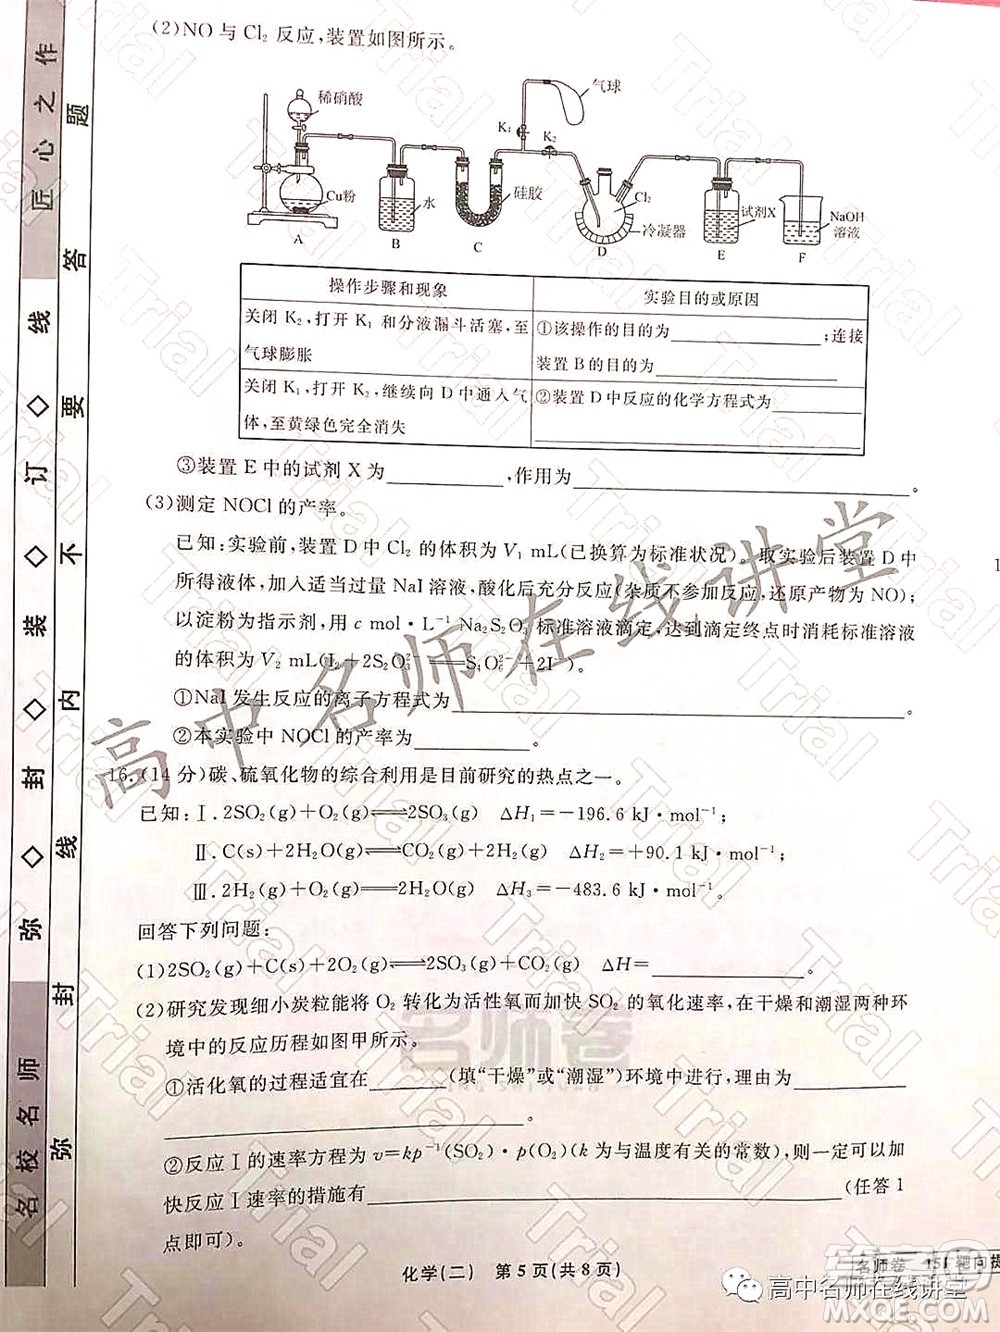 (2)NO 与 Cl₂ 反应,装置如图所示。
稀硝酸
Cu粉
A
水
B
硅胶
C
K₁
K₂
气球
Cl₂
冷凝器
D
试剂X
E
NaOH
溶液
F
操作步骤和现象
实验目的或原因
关闭 K₂,打开 K₁ 和分液漏斗活塞,至
气球膨胀
①该操作的目的为________;连接
装置 B 的目的为________
关闭 K₁,打开 K₂,继续向 D 中通入气
体,至黄绿色完全消失
②装置 D 中反应的化学方程式为________
③装置 E 中的试剂 X 为________,作用为________。
(3)测定 NOCl 的产率。
已知:实验前,装置 D 中 Cl₂ 的体积为 V₁ mL(已换算为标准状况)。取实验后装置 D 中
所得液体,加入适量 NaI 溶液,酸化后充分反应(杂质不参加反应,还原产物为 NO);
以淀粉为指示剂,用 c mol·L⁻¹ Na₂S₂O₃ 标准溶液滴定,达到滴定终点时消耗标准溶液
的体积为 V₂ mL(I₂+2S₂O₃²⁻══S₄O₆²⁻+2I⁻)。
①NaI 发生反应的离子方程式为________。
②本实验中 NOCl 的产率为________。
16.(14 分)碳、硫氧化物的综合利用是目前研究的热点之一。
已知:Ⅰ.2SO₂(g)+O₂(g)⇌2SO₃(g) ΔH₁=-196.6 kJ·mol⁻¹;
Ⅱ.C(s)+2H₂O(g)⇌CO₂(g)+2H₂(g) ΔH₂=+90.1 kJ·mol⁻¹;
Ⅲ.2H₂(g)+O₂(g)⇌2H₂O(g) ΔH₃=-483.6 kJ·mol⁻¹。
回答下列问题:
(1)2SO₂(g)+C(s)+2O₂(g)⇌2SO₃(g)+CO₂(g) ΔH=________。
(2)研究发现细小炭粒能将 O₂ 转化为活性氧而加快 SO₂ 的氧化速率,在干燥和潮湿两种环
境中的反应历程如图甲所示。
①活化氧的过程适宜在________(填“干燥”或“潮湿”)环境中进行,理由为________
________。
②反应Ⅰ的速率方程为 v=kp⁻¹(SO₂)·p(O₂)(k 为与温度有关的常数),则一定可以加
快反应Ⅰ速率的措施有________(任答 1
点即可)。
化学(二) 第 5 页(共 8 页)
名师卷
151 靶向提
匠心之作
名校名师
弥 ◇ 封 ◇ 装 ◇ 订 ◇ 线
弥 封 线 内 不 要 答 题
高中名师在线讲堂
名师卷
Trial
高中名师在线讲堂
MXQE.COM